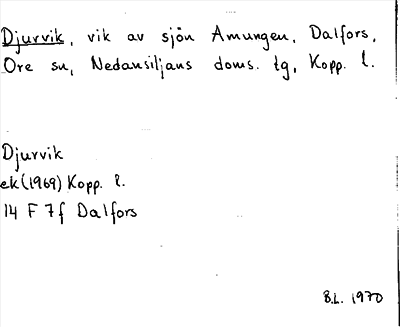 Djurvik, vik av sjön Amungen, Dalfors,
Ore sn, Nedansiljans doms. tg, Kopp. l.
Djurvik
ek (1969) Kopp. l.
14 F 7f Dalfors
B.L. 1970